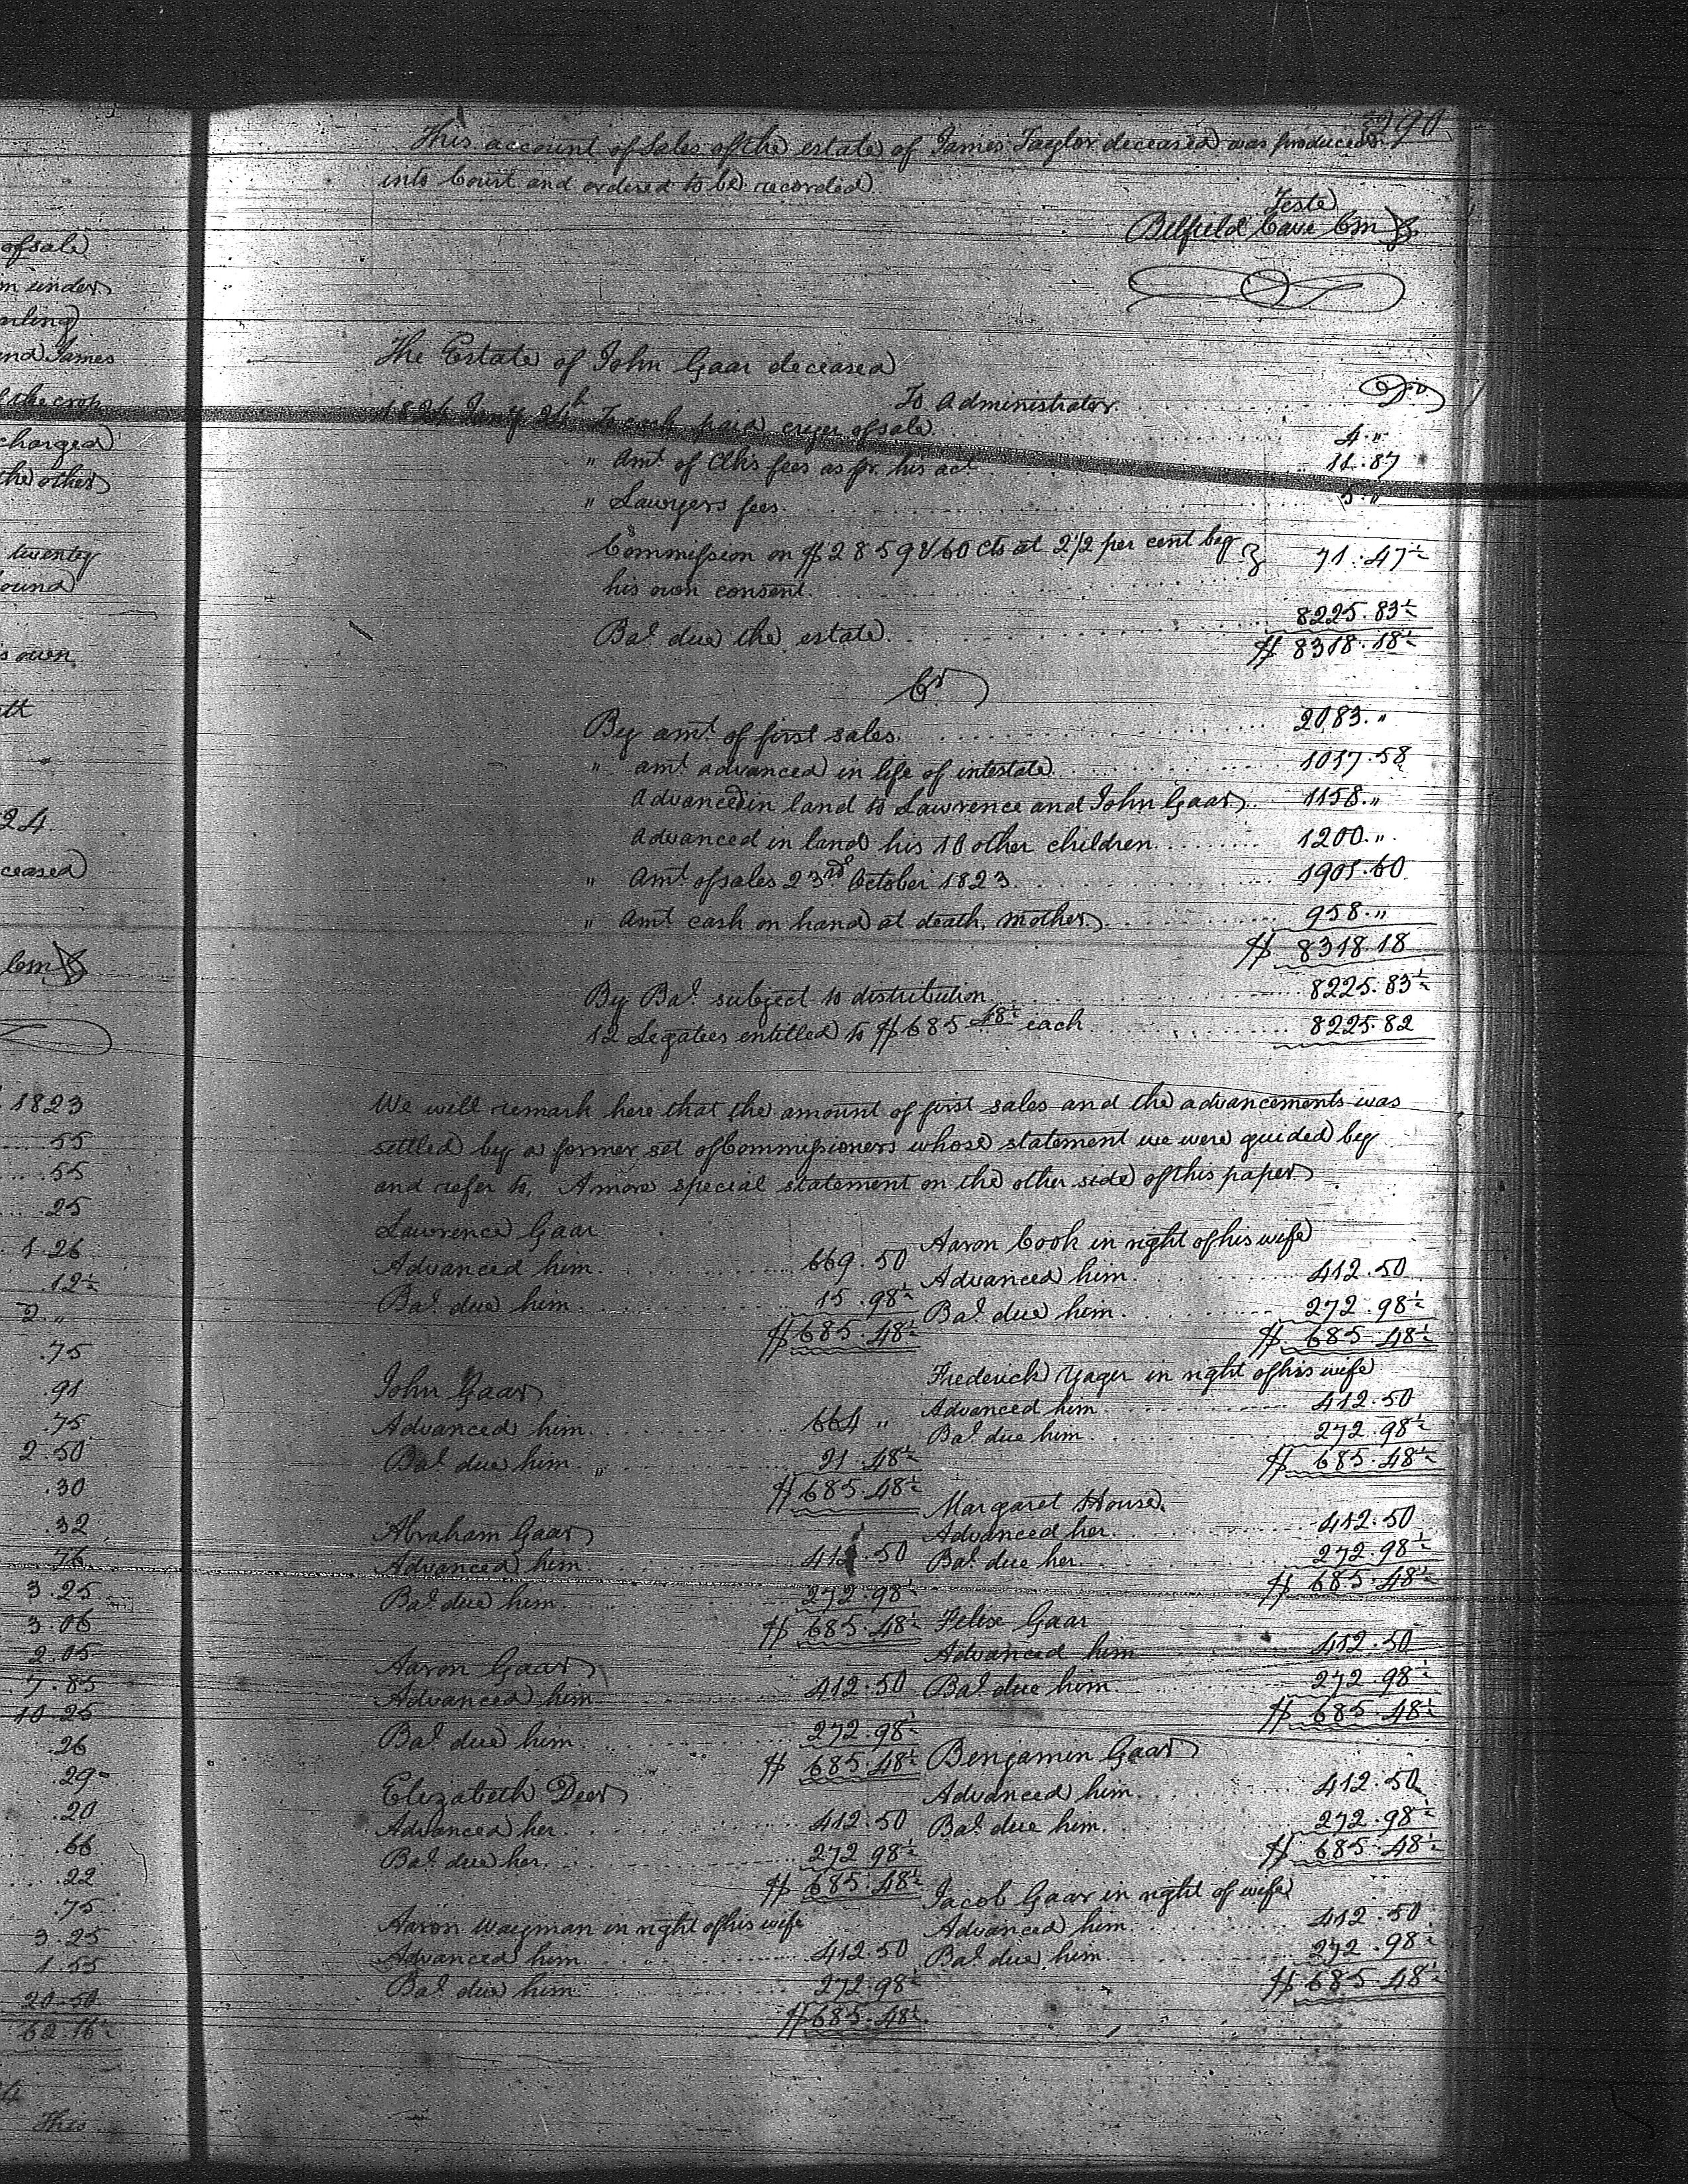 290
This account of Sales of the estate of James Taylor deceased was produced
into Court and ordered to be recorded.
Teste
Belfield Cave Cm
The Estate of John Gaar deceased
To Administrator Dr
To cash paid cryer of sale 4 . "
" Amt. of Clks fees as pr. his act 11.87
" Lawyers fees 5 . "
Commission on $2859 &/60 cts at 2 1/2 per cent by
his own consent. 71.47½
Bal. due the estate. 8225.83½
$ 8318.18½
Cr
By amt. of first sales. 2083. "
" amt advanced in life of intestate 1017.58
Advanced in land to Lawrence and John Gaar. 1158. "
Advanced in land his 10 other children 1200. "
" Amt. of sales 23rd October 1823. 1901.60
" Amt cash on hand at death, mother. 958. "
$ 8318.18
By Bal. subject to distribution 8225.83½
12 Legatees entitled to $685 48½ each 8225.82
We will remark here that the amount of first sales and the advancements was
settled by a former set of Commissioners whose statement we were guided by
and refer to. A more special statement on the other side of this paper
Lawrence Gaar
Advanced him. 669.50
Bal. due him 15.98½
$685.48½
John Gaar
Advanced him. 664 "
Bal. due him " 21.48½
$685.48½
Abraham Gaar
Advanced him 412.50
Bal. due him 272.98½
$ 685.48½
Aaron Gaar
Advanced him 412.50
Bal. due him 272.98½
$ 685.48½
Elizabeth Deer
Advanced her 412.50
Bal. due her. 272 98½
$ 685.48½
Aaron Wayman in right of his wife
Advanced him 412.50
Bal. due him 272.98½
$685.48½
Aaron Cook in right of his wife
Advanced him. 412.50
Bal. due him. 272.98½
$ 685.48½
Frederick Yager in right of his wife
Advanced him 412.50
Bal. due him. 272.98½
$ 685.48½
Margaret House.
Advanced her. 412.50
Bal. due her. 272.98½
$ 685.48½
Felix Gaar
Advanced him 412.50
Bal. due him 272.98½
$ 685.48½
Benjamin Gaar
Advanced him. 412.50
Bal. due him. 272.98½
$ 685.48½
Jacob Gaar in right of wife
Advanced him. 412.50
Bal. due him. 272.98½
$ 685.48½
of sale
m under
and James
of the crop
charged
the other
twenty
ound
s own
att
24
ceased
1823
55
55
.25
1.26
.12½
2. "
.75
.91
.75
2.50
.30
.32
.76
3.25
3.06
2.05
7.85
10.25
.26
.29
.20
.66
.22
.75
3.25
1.55
20.50
62.16½
This